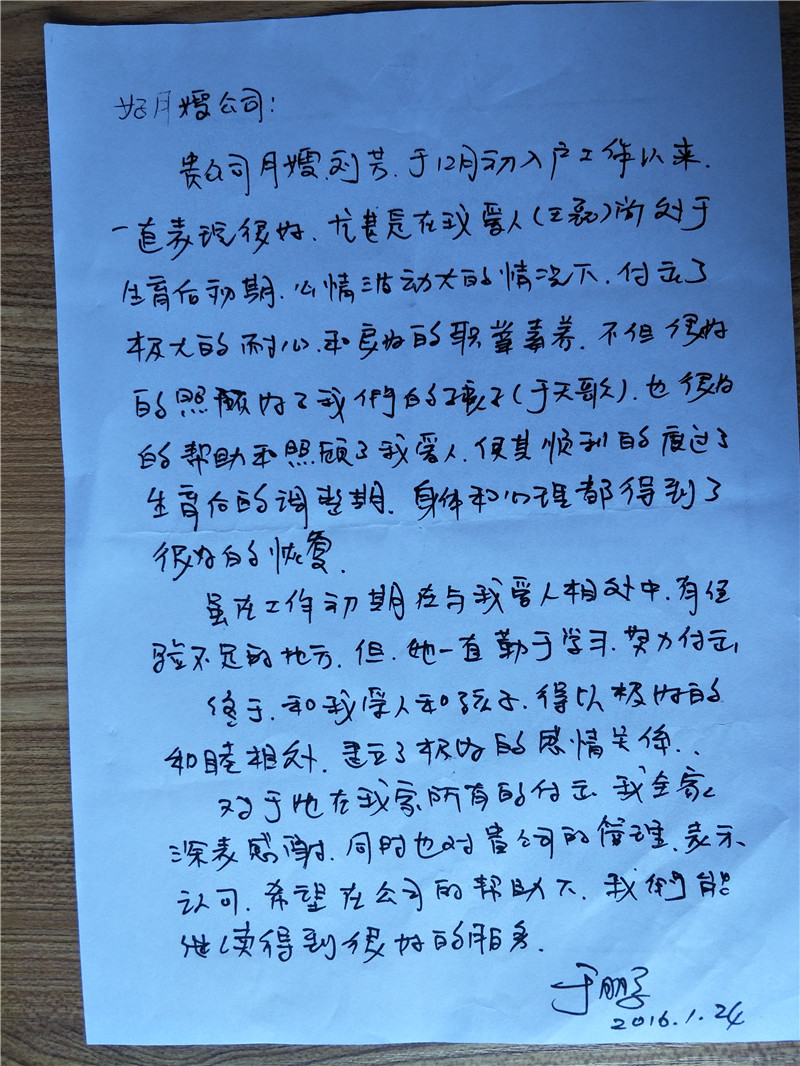 好月嫂公司：
贵公司月嫂.刘芳.于12月初入户工作以来.
一直表现很好.尤其是在我爱人(王磊)尚处于
生育后初期.心情波动大的情况下.付出了
极大的耐心.和良好的职业素养.不但很好
的照顾好了我們的孩子(于天歌).也很好
的帮助和照顾了我爱人.使其顺利的度过了
生育后的调整期.身体和心理都得到了
很好的恢复.
虽在工作初期在与我爱人相处中.有经
验不足的地方.但.她一直勤于学习.努力付出,
终于.和我爱人和孩子.得以极好的
和睦相处.建立了极好的感情关係..
对于她在我家所有的付出.我全家
深表感谢.同时也对贵公司的管理.表示
认可.希望在公司的帮助下.我們能
继续得到很好的服务.
于鹏
2016.1.24